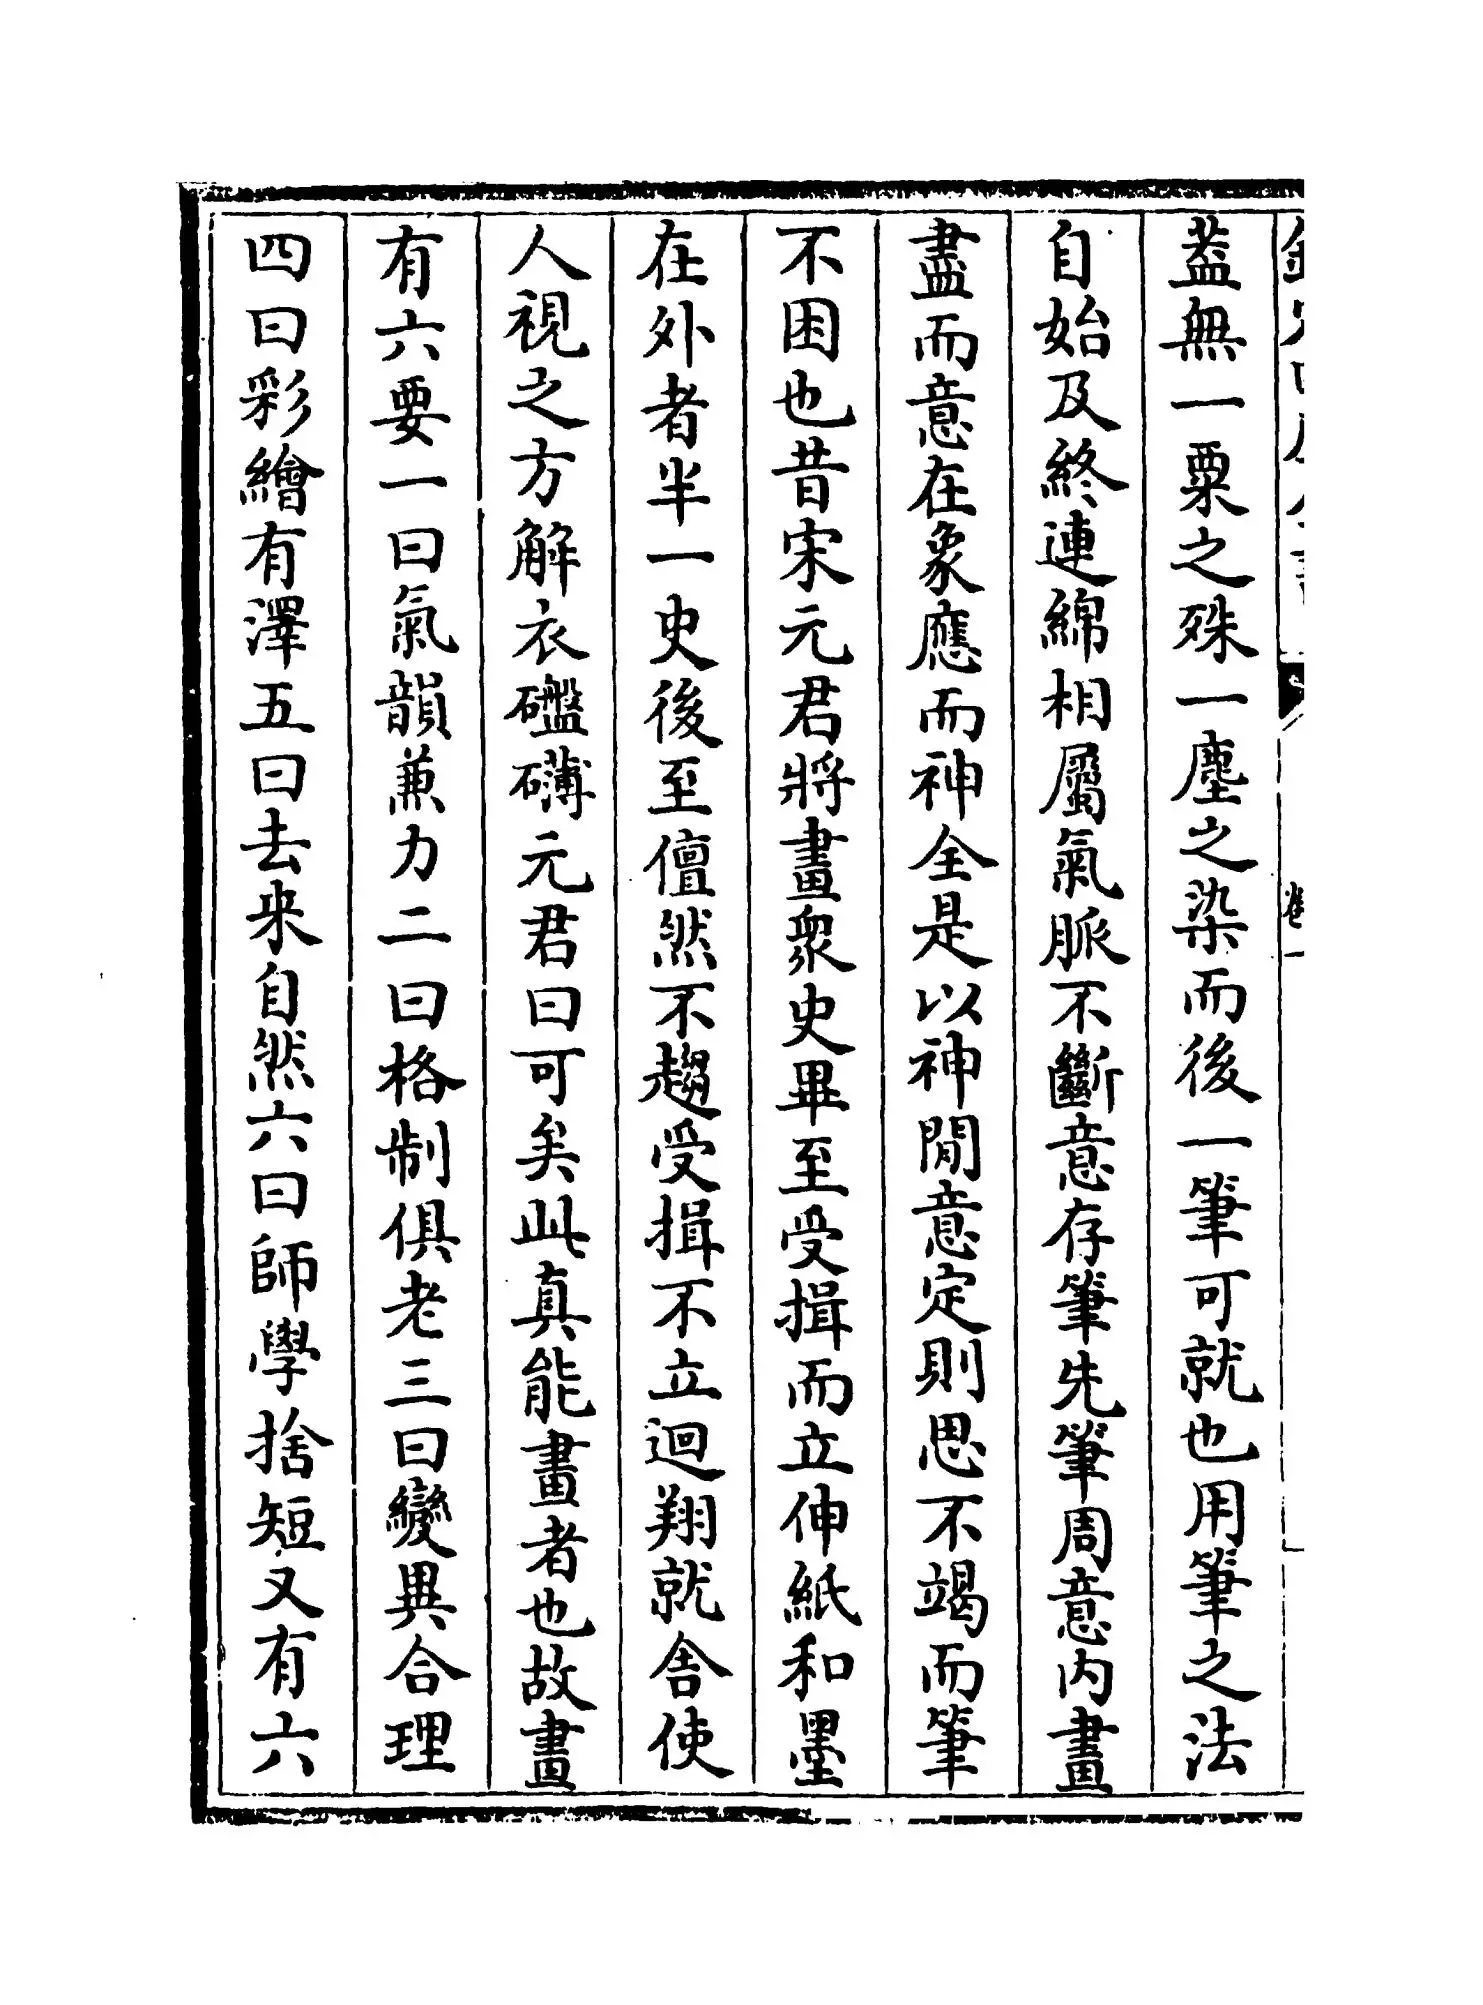 蓋無一粟之殊一塵之染而後一筆可就也用筆之法
自始及終連綿相屬氣脈不斷意存筆先筆周意內畫
盡而意在象應而神全是以神閒意定則思不竭而筆
不困也昔宋元君將畫衆史畢至受揖而立伸紙和墨
在外者半一史後至儃然不趨受揖不立迴翔就舍使
人視之方解衣礚礴元君曰可矣此真能畫者也故畫
有六要一曰氣韻兼力二曰格制俱老三曰變異合理
四曰彩繪有澤五曰去來自然六曰師學捨短又有六